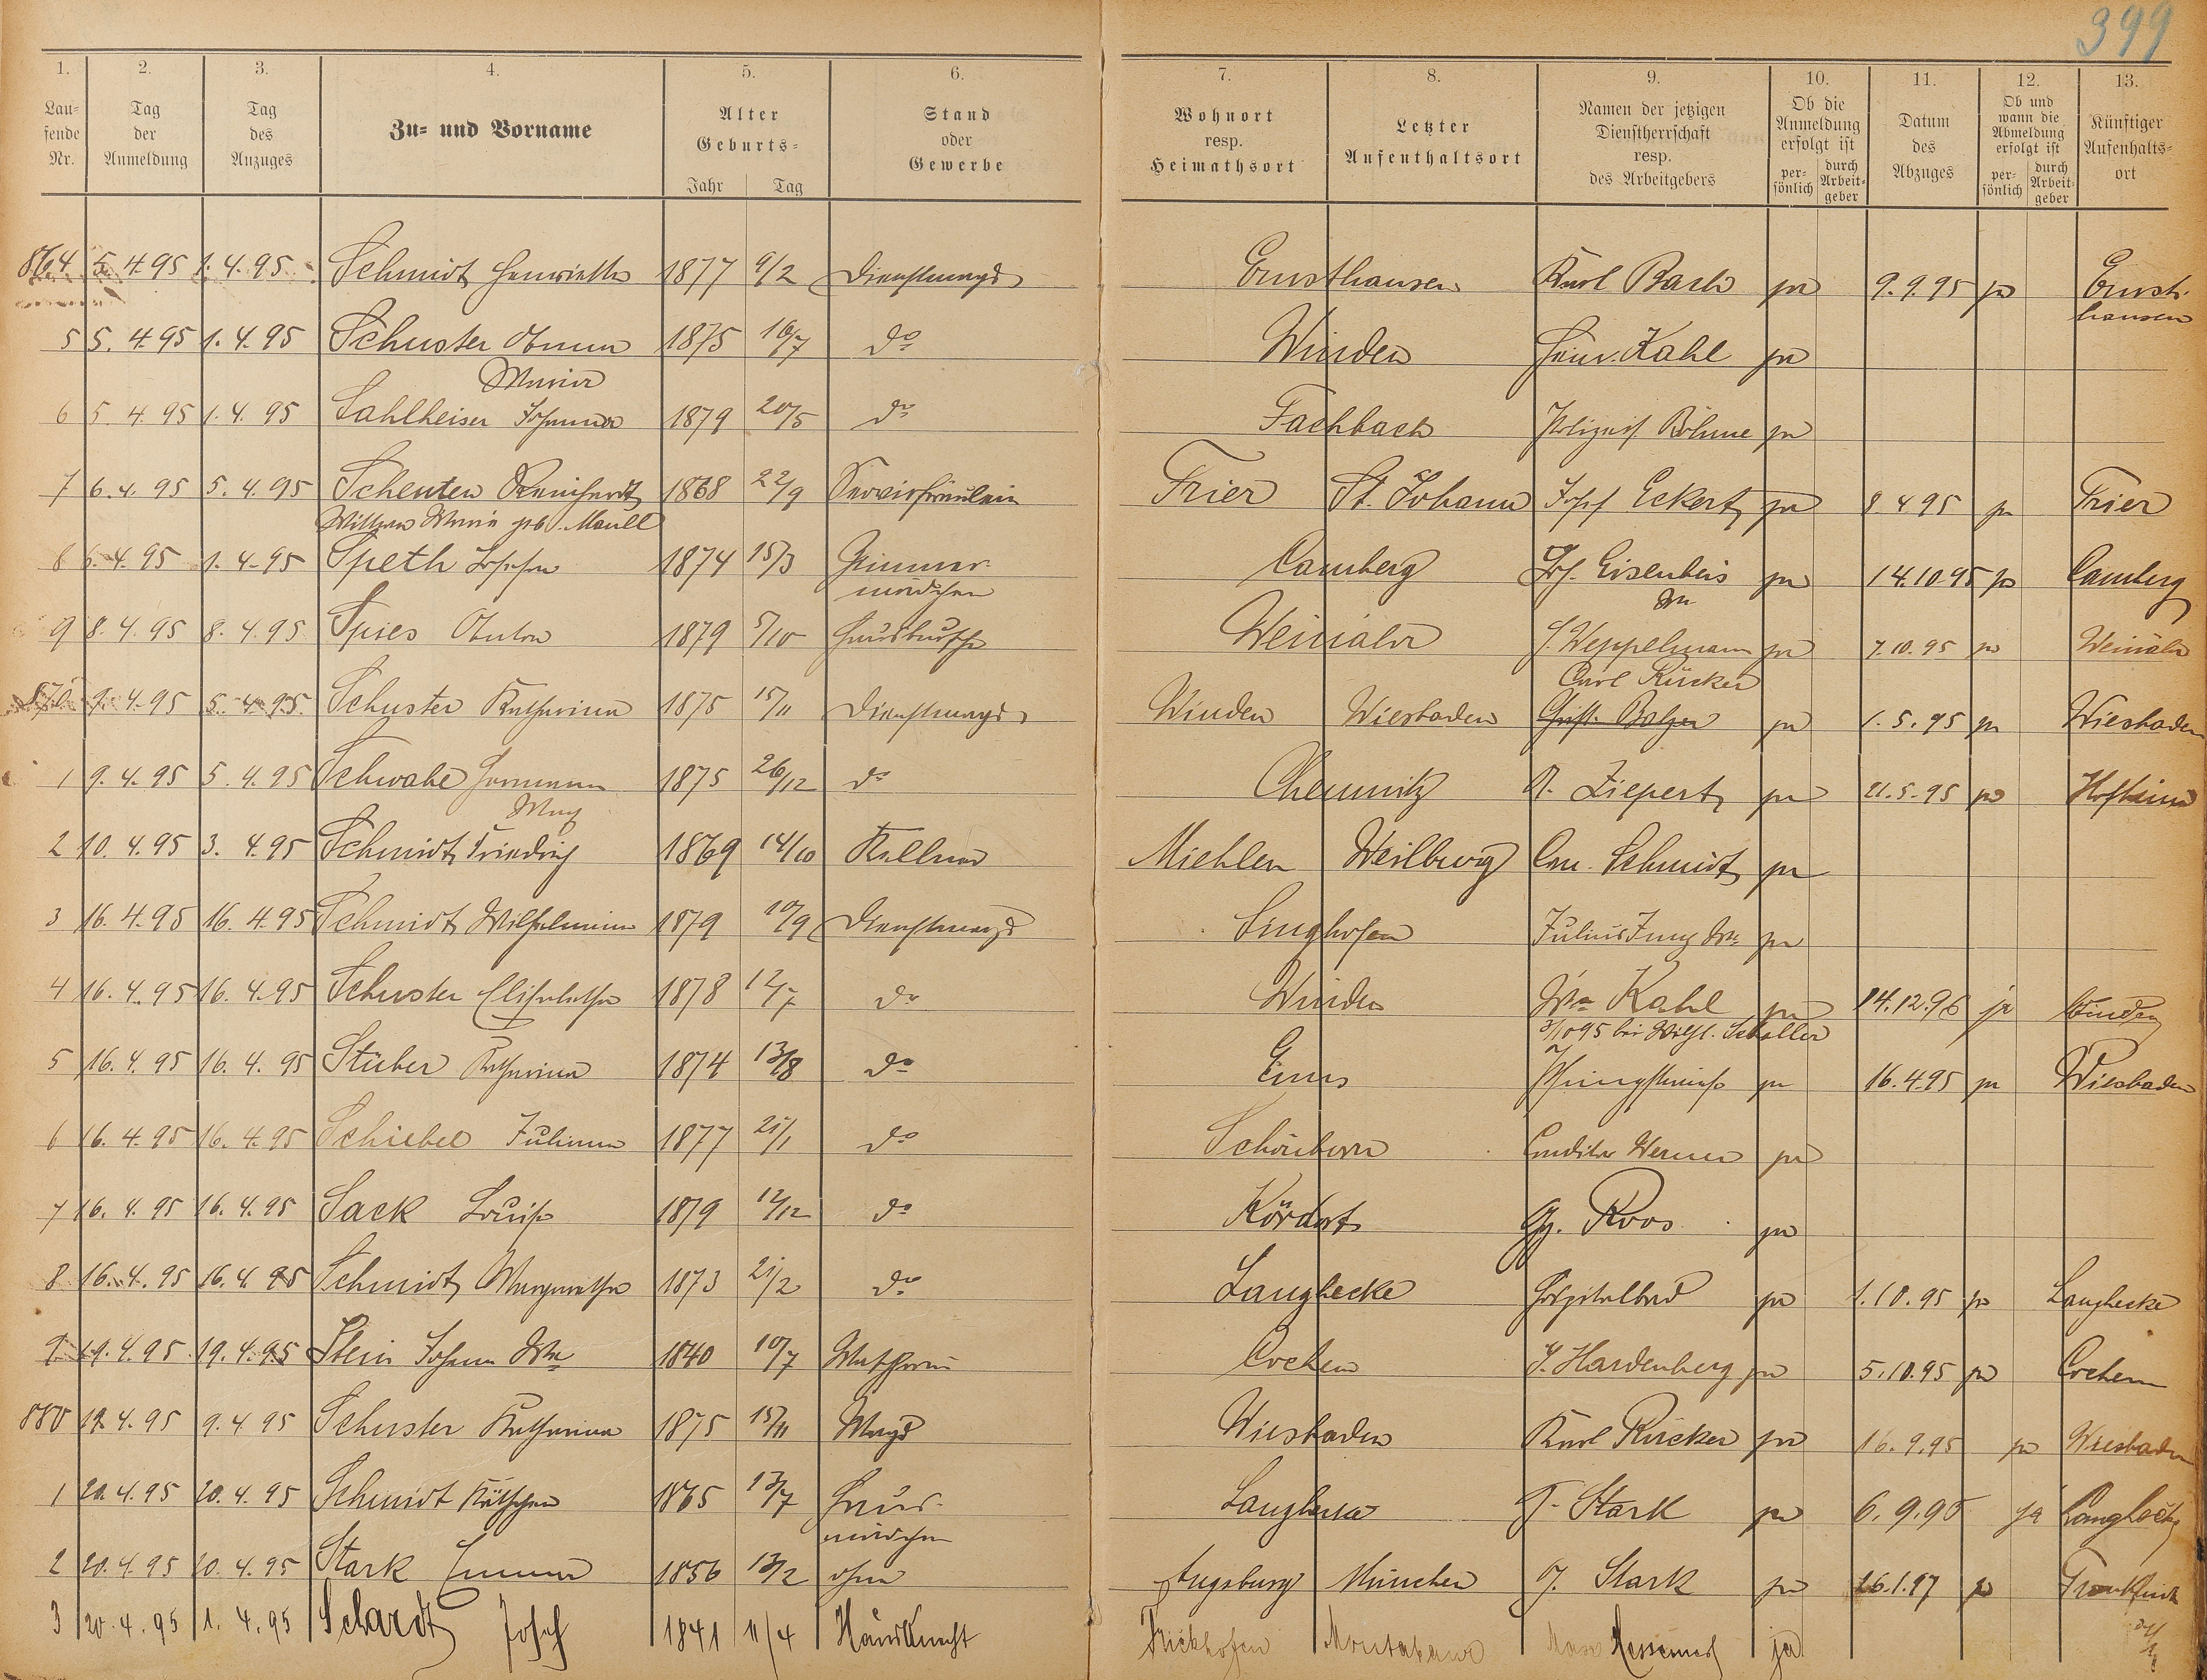 399
1. 2. 3. 4. 5. 6. 7. 8. 9. 10. 11. 12. 13.
Laufende Nr.
Tag der Anmeldung
Tag des Anzuges
Zu- und Vorname
Alter
Geburts-
Jahr Tag
Stand oder Gewerbe
Wohnort resp. Heimathsort
Letzter Aufenthaltsort
Namen der jetzigen Dienstherrschaft resp. des Arbeitgebers
Ob die Anmeldung erfolgt ist
persönlich durch Arbeitgeber
Datum des Abzuges
Ob und wann die Abmeldung erfolgt ist
persönlich durch Arbeitgeber
Künftiger Aufenhalts-ort
864 5. 4. 95 1. 4. 95 Schmidt Henriette 1877 9/2 Dienstmagd Ernsthausen Karl Bach ja 9. 9. 95 ja Ernsthausen
5 5. 4. 95 1. 4. 95 Schuster Anna Maria 1875 16/7 do Winden Heinr. Kahl ja
6 5. 4. 95 1. 4. 95 Sahlheiser Johanna 1879 20/5 do Fachbach Böhme ja
7 6. 4. 95 5. 4. 95 Schenten Reinhardt 1868 22/9 Servirfräulein Trier St. Johann Josef Eckert ja 8 4 95 ja Trier
Wittwe Maria geb. Maull
8 6. 4. 95 1. 4. 95 Speth 1874 15/3 Zimmermädchen Camberg Jos. Eisenbeis Ww ja 14. 10. 95 ja Camberg
9 8. 4. 95 8. 4. 95 Spies Anton 1879 5/10 Hausbursche Weinähr J. Weppelmann ja 7. 10. 95 ja Weinähr
870 9. 4. 95 5. 4. 95 Schuster Katharina 1875 15/11 Dienstmagd Winden Wiesbaden Carl Rücker Christ. Balzer ja 1. 5. 95 ja Wiesbaden
1 9. 4. 95 5. 4. 95 Schwabe Hermann Max 1875 26/12 do Chemnitz R. Ziepert ja 21. 5. 95 ja Hofheim
2 10. 4. 95 3. 4. 95 Schmidt Friedrich 1869 14/10 Kellner Miehlen Weilburg Schmidt ja
3 16. 4. 95 16. 4. 95 Schmidt Wilhelmine 1879 10/9 Dienstmagd Singhofen Julius Jung Ww ja
4 16. 4. 95 16. 4. 95 Schuster Elisabetha 1878 12/7 do Winden Ww Kahl ja 14. 12. 96 ja Winden
3/10 95 bei Wilh. Scholler
5 16. 4. 95 16. 4. 95 Stüber Katharina 1874 13/8 do Ems ja 16. 4. 95 ja Wiesbaden
6 16. 4. 95 16. 4. 95 Schiebel Juliana 1877 21/1 do Schönborn Conditor Werner ja
7 16. 4. 95 16. 4. 95 Sack Louise 1879 12/12 do Kördorf Gg. Roos ja
8 16. 4. 95 16. 4. 95 Schmidt Margaretha 1873 21/2 do Langhecke Hospitalbad ja 1. 10. 95 ja Langhecke
9 19. 4. 95 19. 4. 95 Stein Johann Ww 1840 10/7 Waschfrau Cochem J. Hardenberg ja 5. 10. 95 ja Cochem
880 19. 4. 95 9. 4 95 Schuster Katharina 1875 15/11 Magd Wiesbaden Karl Rücker ja 16. 9. 95 ja Wiesbaden
1 20. 4. 95 20. 4. 95 Schmidt Käthchen 1865 13/7 Hausmädchen T. Stark ja 6. 9. 95 ja Langhecke
2 20. 4. 95 20. 4. 95 Stark Emma 1856 13/2 ohne Augsburg München J. Stark ja 26. 1. 97 ja Frankfurt
3 20. 4. 95 1. 4. 95 Schardt Josef 1841 11/4 Hausknecht Frickhofen Montabaur Max ja